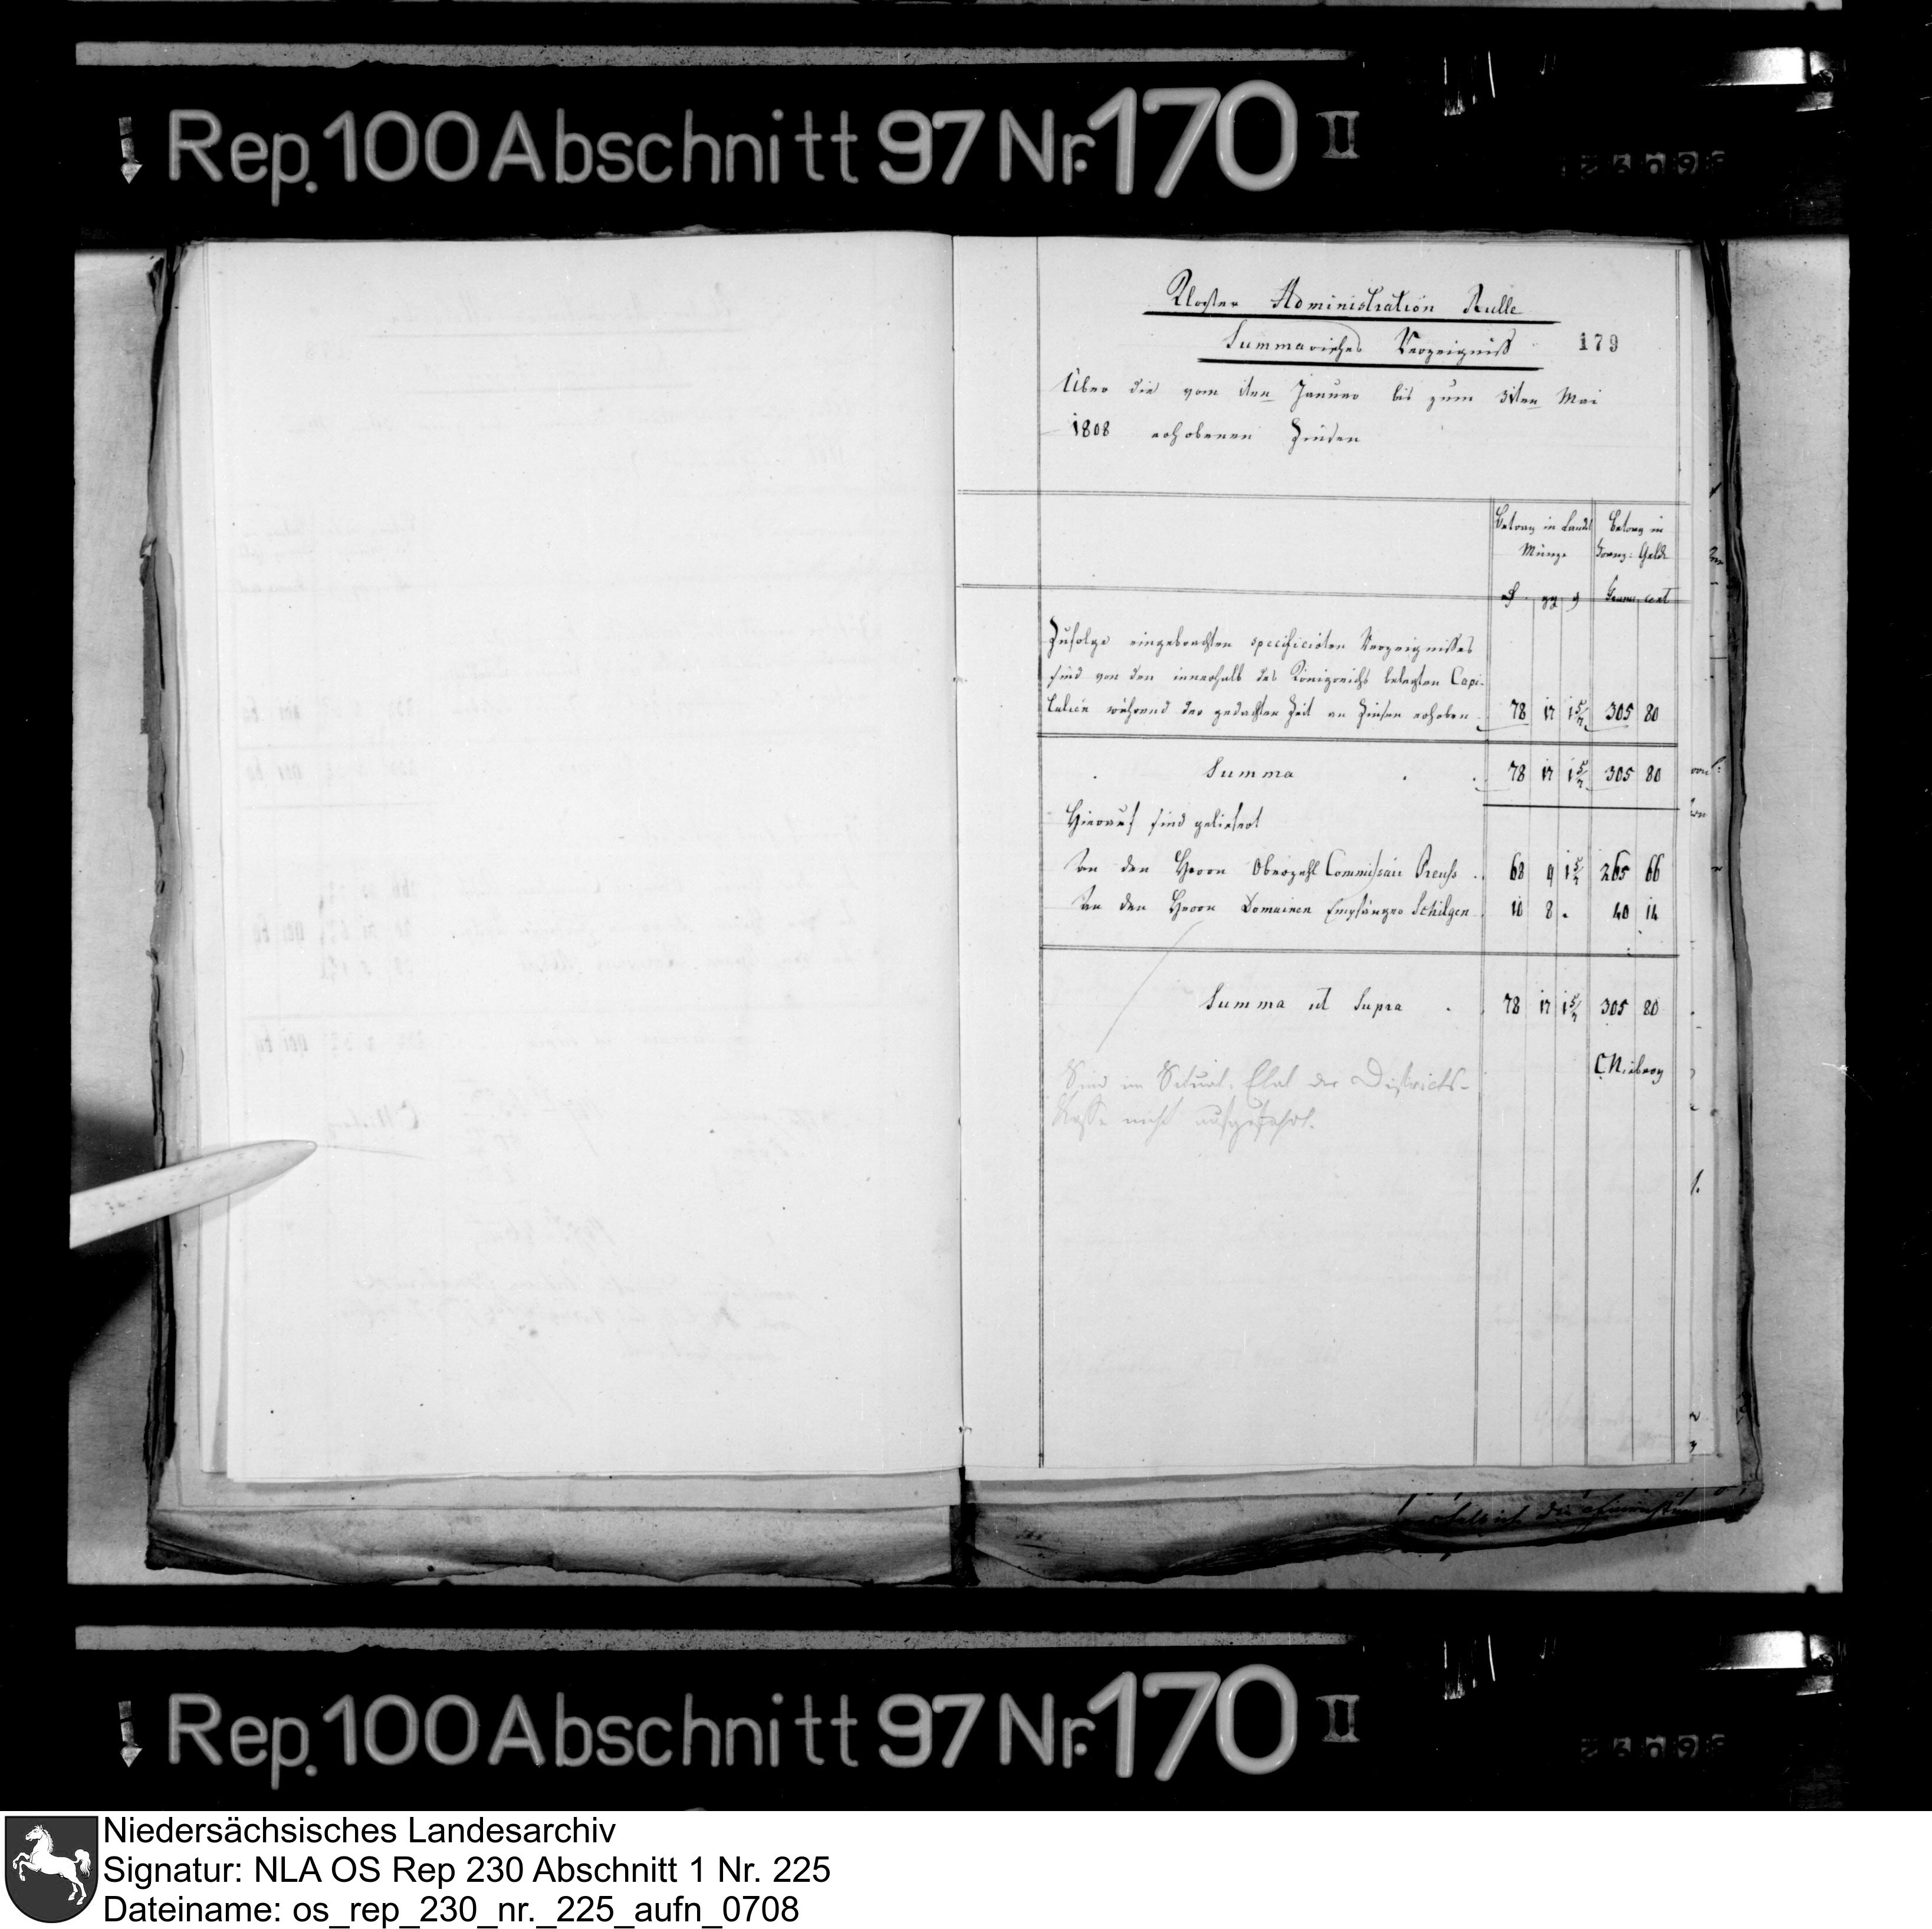 Rep. 100 Abschnitt 97 Nr. 170 II
Kloster Administration Rulle
Summarisches Verzeigniß
179
Über die vom 1ten Januar bis zum 31ten Mai
1808 erhobenen Zinsen
Betrag in Landes Münze
Betrag in Franz: Gelde
ggr ₰ Francs cent
Zufolge eingebrachten specificirten Verzeignisses
sind von den innerhalb des Königreichs belegten Capi-
talien während der gedachten Zeit an Zinsen erhoben 78 17 1 5/7 305 80
Summa 78 17 1 5/7 305 80
Hierauf sind geliefert
An den Herrn Oberzahl Commissair Preuss 68 9 1 5/7 265 66
An den Herrn Domainen Empfänger Schilgen 10 8 . 40 14
Summa ut Supra 78 17 1 5/7 305 80
CNieberg
Sind im Situat. Etat der Districts-
Kasse nicht aufgeführt.
Rep. 100 Abschnitt 97 Nr. 170 II
Niedersächsisches Landesarchiv
Signatur: NLA OS Rep 230 Abschnitt 1 Nr. 225
Dateiname: os_rep_230_nr._225_aufn_0708